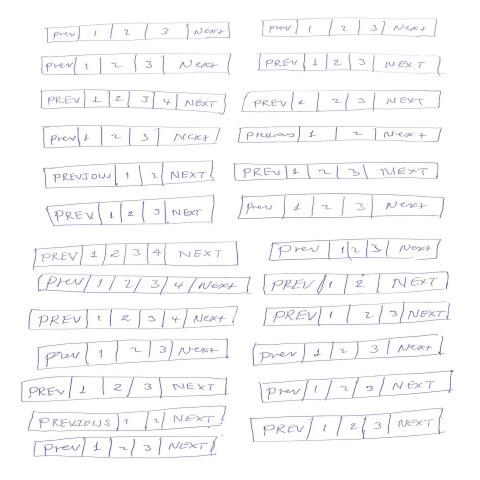 prev 1 2 3 Next
prev 1 2 3 Next
prev 1 2 3 Next
PREV 1 2 3 NEXT
PREV 1 2 3 4 NEXT
PREV 1 2 3 NEXT
prev 1 2 3 Next
Previous 1 2 Next
PREVIOUS 1 2 NEXT
PREV 1 2 3 NEXT
PREV 1 2 3 NEXT
prev 1 2 3 Next
PREV 1 2 3 4 NEXT
prev 1 2 3 Next
Prev 1 2 3 4 Next
PREV 1 2 NEXT
PREV 1 2 3 4 Next
PREV 1 2 3 NEXT
prev 1 2 3 Next
prev 1 2 3 Next
PREV 1 2 3 NEXT
prev 1 2 3 NEXT
PREVIOUS 1 2 NEXT
PREV 1 2 3 NEXT
prev 1 2 3 NEXT